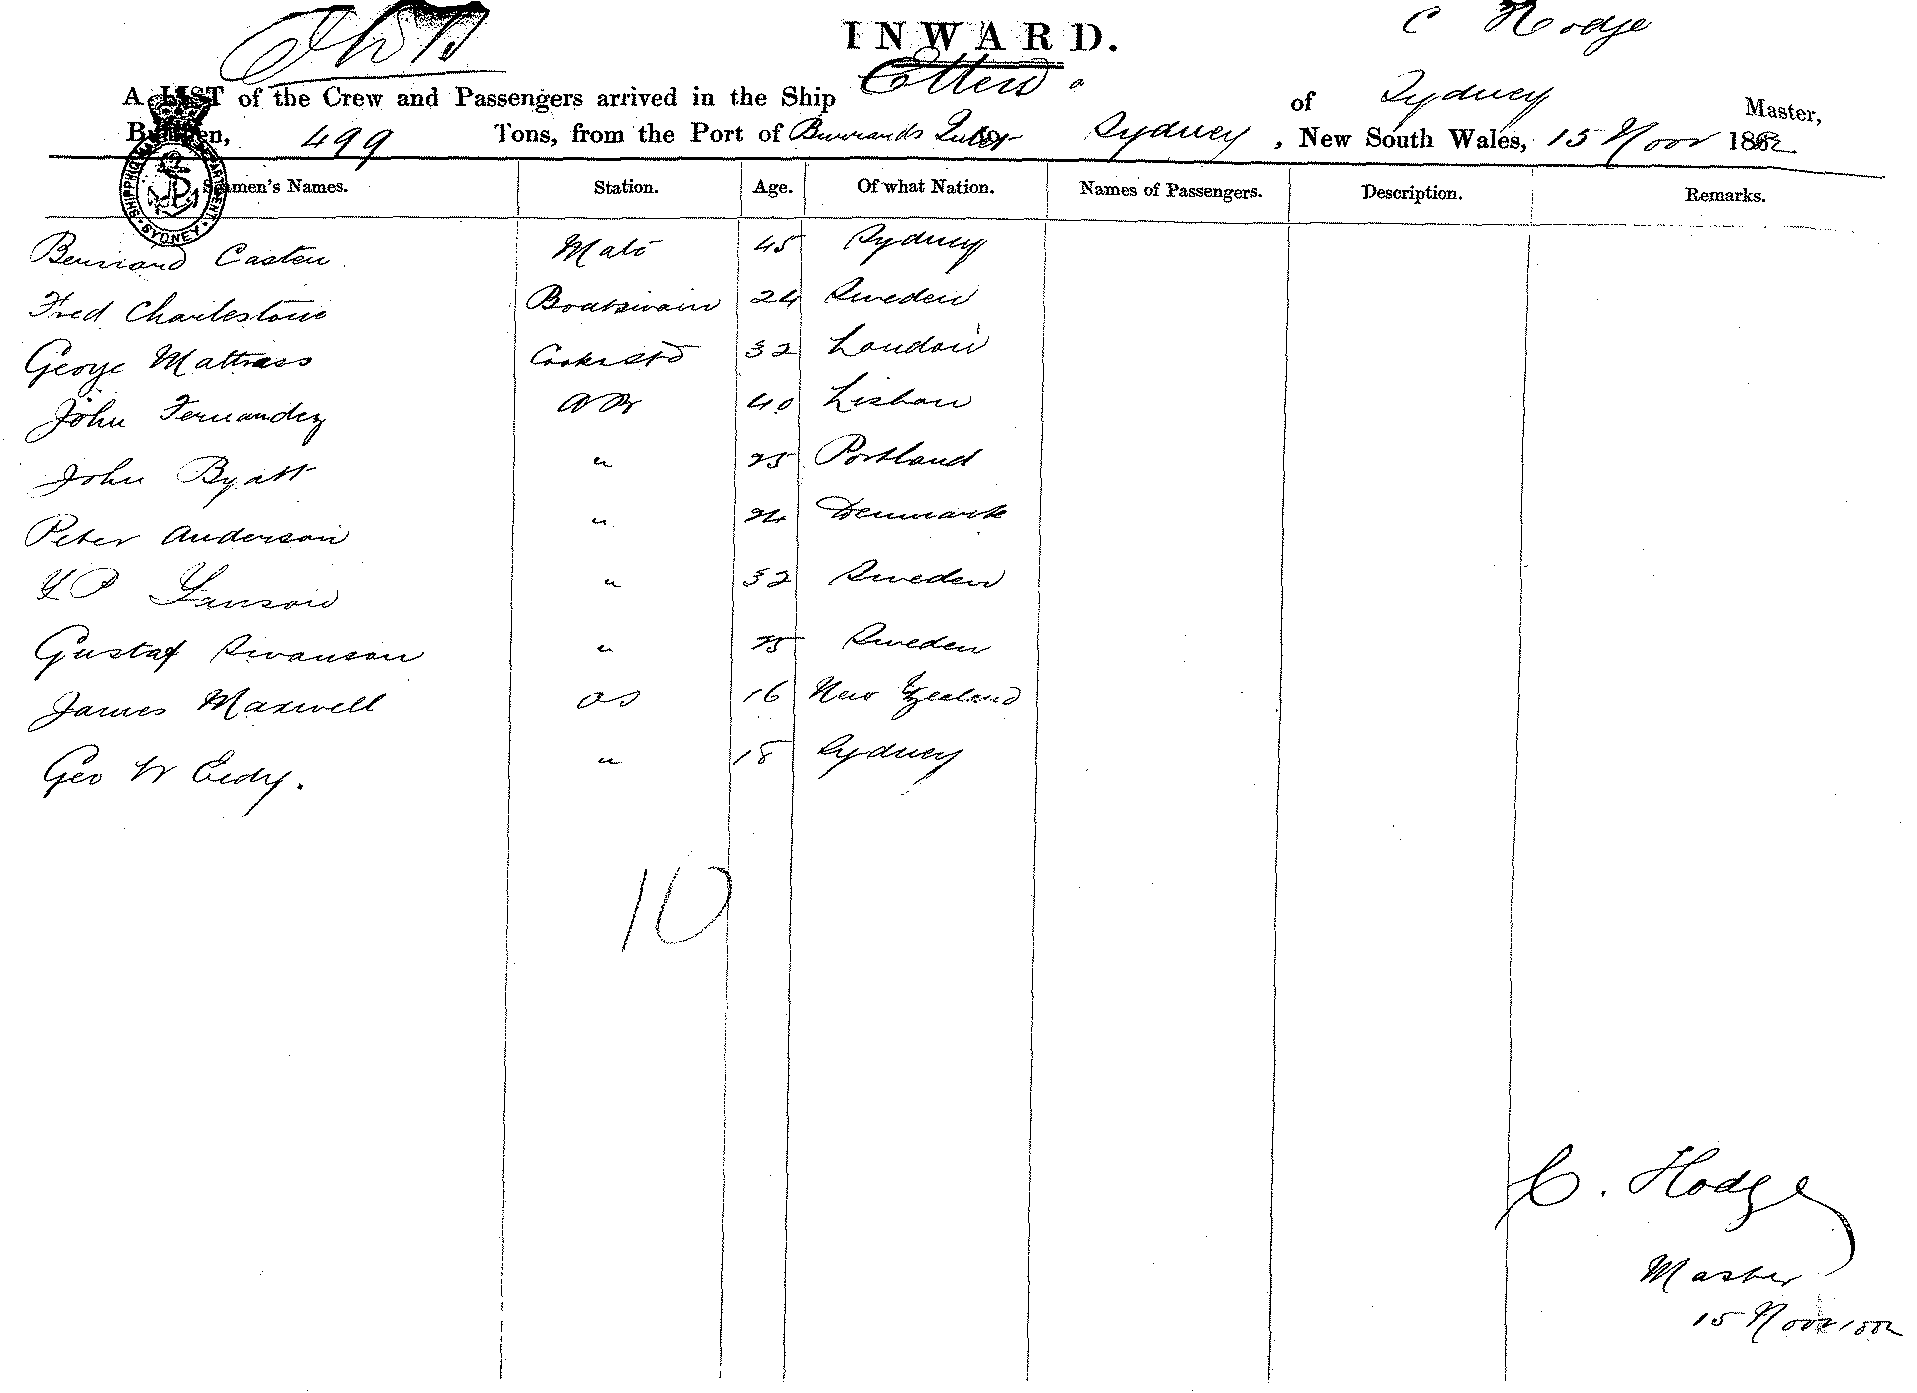 INWARD.
C Hodge
A LIST of the Crew and Passengers arrived in the Ship of Sydney Master,
Burthen, 499 Tons, from the Port of Burrards Inlet to Sydney, New South Wales, 15 Novr 1882
Seamen's Names. Station. Age. Of what Nation. Names of Passengers. Description. Remarks.
SHIPPING DEPARTMENT · SYDNEY ·
Bernard Casten Mate 45 Sydney
Fred Charlestone Boatswain 24 Sweden
George Mattrass Cook & Std 32 London
John Fernandez AB 40 Lisbon
John Byatt " 25 Portland
Peter Anderson " 24 Denmark
Y P Yanson " 32 Sweden
Gustaf Swanson " 25 Sweden
James Maxwell OS 16 New Zealand
Geo W " 18 Sydney
10
C. Hodge
Master
15 Novr 1882